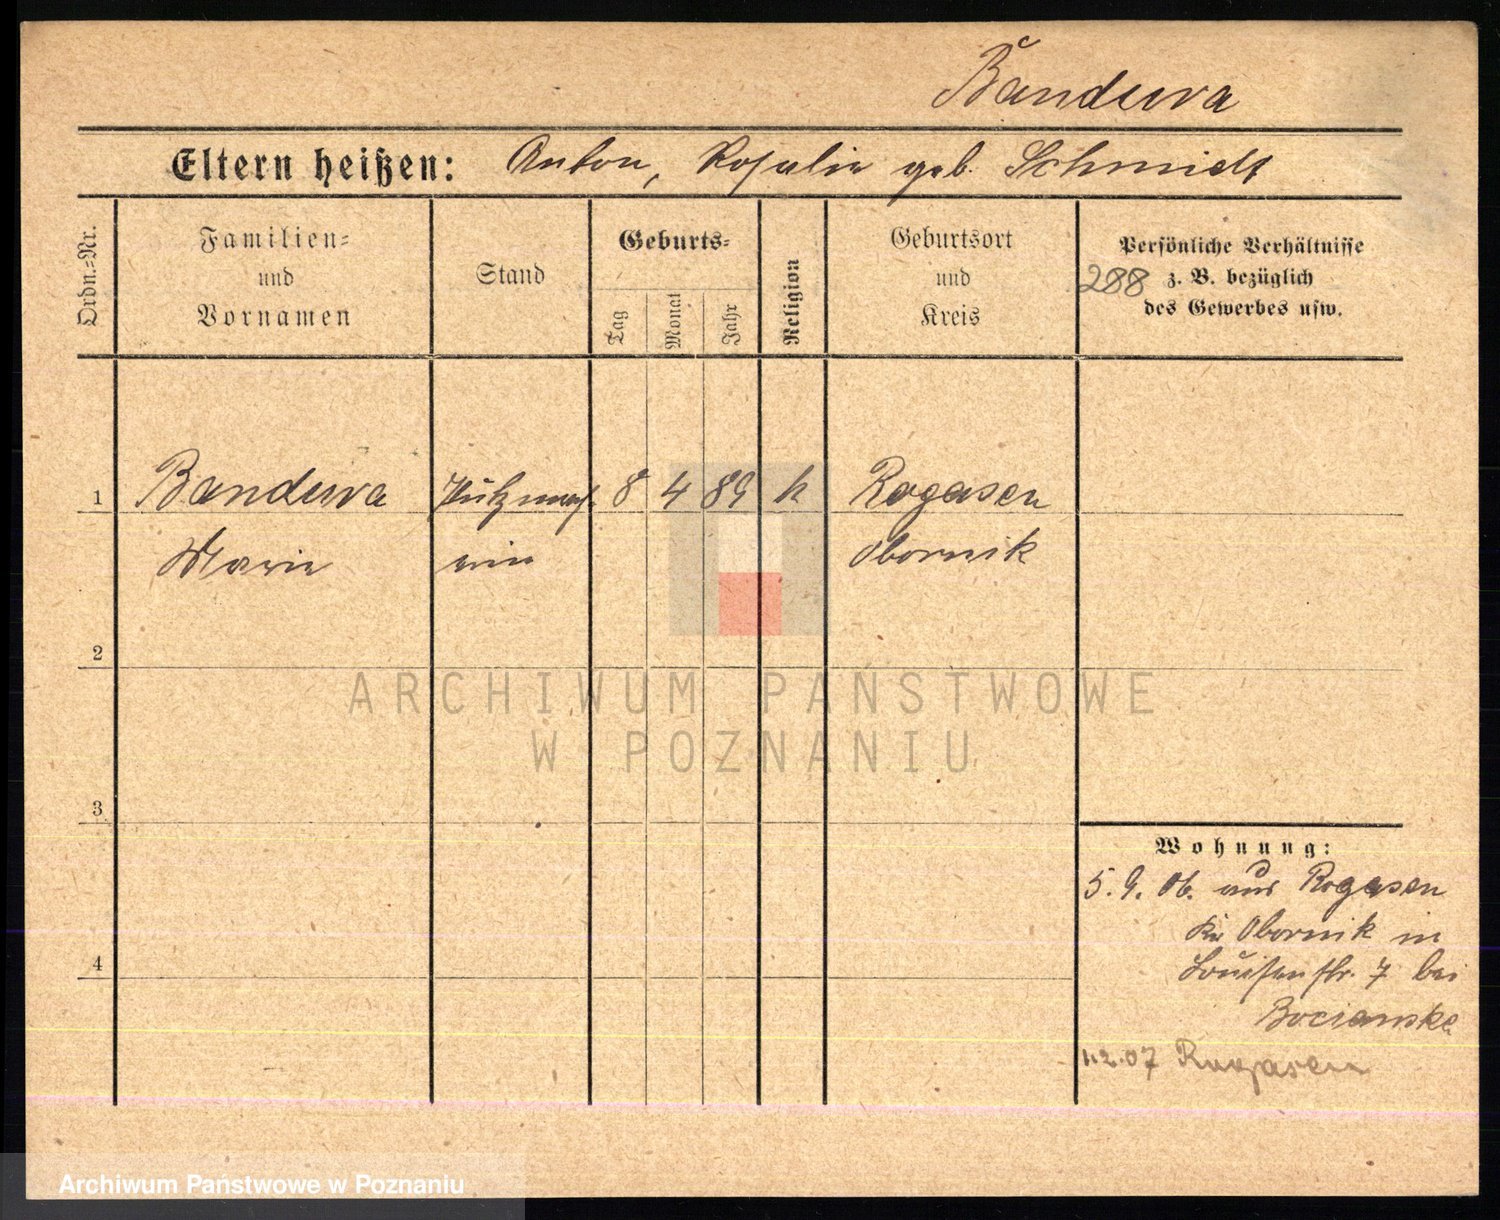 Bandura
Eltern heißen: Anton, Rosalie geb. Schmidt
Ordn.-Nr.
Familien-
und
Vornamen
Stand
Geburts-
Tag
Monat
Jahr
Religion
Geburtsort
und
Kreis
Persönliche Verhältnisse
z. B. bezüglich
des Gewerbes usw.
288
1 Bandura Putzmach- 8 4 89 k Rogasen
Marie erin Obornik
2
3
4
Wohnung:
5. 9. 06. aus Rogasen
Kr Obornik in
Louisenstr. 7 bei
Bocianske
1.2.07 Rogasen
ARCHIWUM PAŃSTWOWE
W POZNANIU
Archiwum Państwowe w Poznaniu